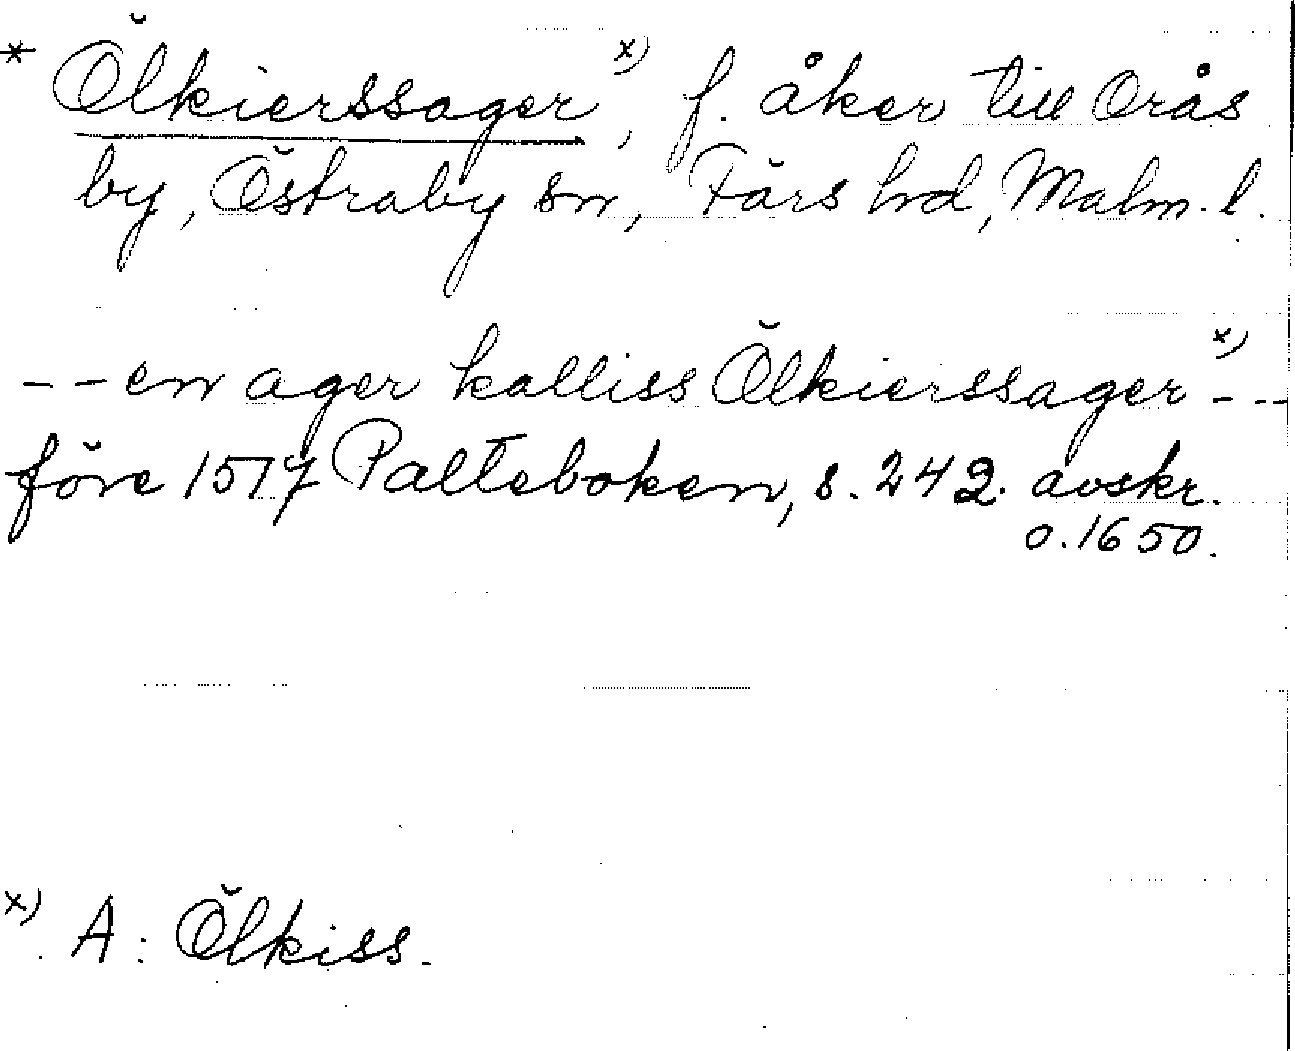 * Ölkierssager x), f. åker till Orås
by, Östraby sn, Färs hd, Malm. l.
- - en ager kalliss Ölkierssager x) - - -
före 1517 Palteboken, s. 242. avskr.
o. 1650.
x) A: Ölkiss.